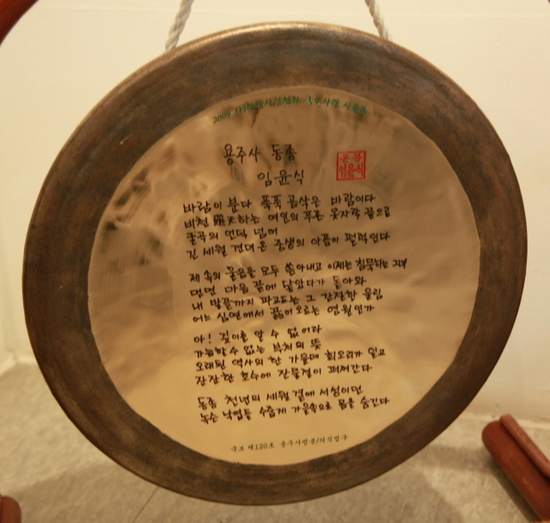 2009
용주사 동종
임윤식
바람이 분다 푹푹 곰삭은 바람이다
비천 하는 여인의 푸른 옷자락 끝으로
굴곡의 언덕 넘어
긴 세월 견뎌온 중생의 아픔이 펄럭인다
제 속의 울음을 모두 쏟아내고 이제는 침묵하는 그녀
면면 마음 끝에 닿았다가 돌아와
내 발끝까지 파고드는 그 간장한 울림
어느 심연에서 끓어오르는 염원인가
아! 깊이를 알 수 없어라
가늠할 수 없는 부처의 뜻
오래된 역사의 찬 가을에 회오리가 일고
잔잔한 호수에 잔물결이 퍼져간다
동종 천년의 세월 곁에 서성이던
녹슨 낙엽들 수줍게 가을속으로 몸을 숨긴다
국보 제120호 용주사범종/의식법구